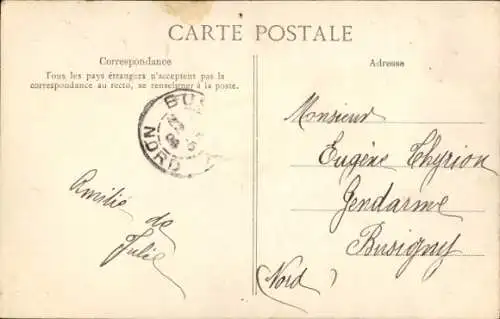 CARTE POSTALE
Correspondance
Tous les pays étrangers n'acceptent pas la
correspondance au recto, se renseigner à la poste.
Adresse
Monsieur
Eugène Thyrion
Gendarme
Busigny
(Nord)
Amitié de
Julie
NORD